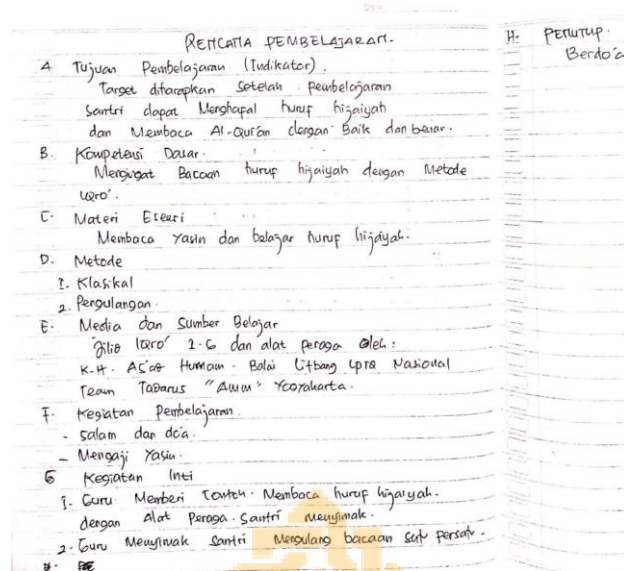 RENCANA PEMBELAJARAN.
A Tujuan Pembelajaran (Indikator).
Target diharapkan setelah pembelajaran
Santri dapat Menghapal huruf hijaiyah
dan Membaca Al-Qur'an dengan Baik dan benar.
B. Kompetensi Dasar.
Mengingat Bacaan huruf hijaiyah dengan Metode
iqro'.
C. Materi Esensi
Membaca Yasin dan belajar huruf hijaiyah.
D. Metode
1. Klasikal
2. Pengulangan.
E. Media dan Sumber Belajar
Jilid Iqro' 1-6 dan alat peraga oleh:
K.H. As'ad Humam. Balai Litbang LPTQ Nasional
Team Tadarus "Amm" Yogyakarta.
F. Kegiatan Pembelajaran.
- Salam dan do'a.
- Mengaji Yasin.
G Kegiatan Inti
1. Guru Memberi Contoh Membaca huruf hijaiyah.
dengan Alat Peraga. Santri Menyimak.
2. Guru Menyimak Santri Mengulang bacaan satu persatu.
H. PENUTUP.
Berdo'a